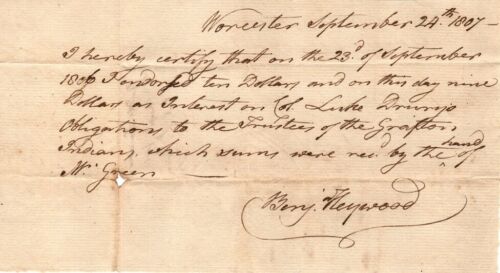 Worcester September 24.th 1807
I hereby certify that on the 23.d of September
1806 I endorsed ten Dollars and on this day nine
Dollars as Interest on Col. Luke Drurys
Obligations to the Trustees of the Grafton
Indians, which sums were rec.d by the hand of
Mr. Green
Benj. Heywood